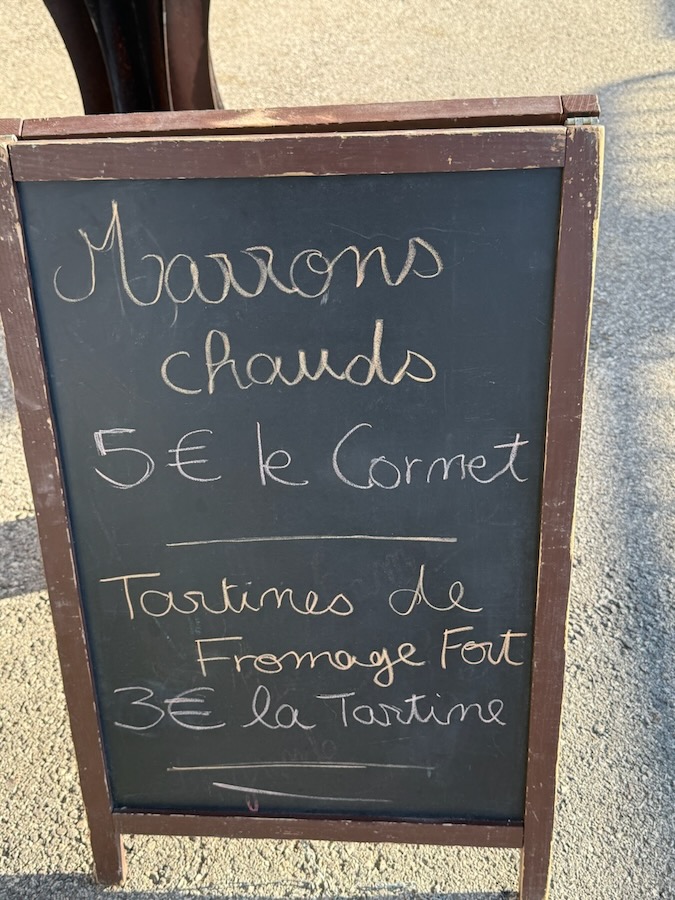 Marrons
chauds
5€ le Cornet
Tartines de
Fromage Fort
3€ la Tartine